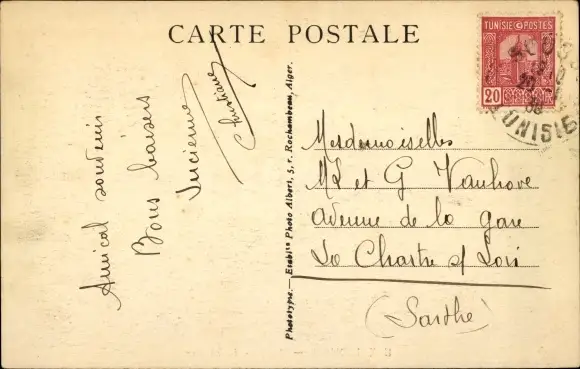 CARTE POSTALE
TUNISIE POSTES
20
TUNISIE
Amical souvenir
Bons baisers
Lucienne
Christiane
Phototypie.— Etablts Photo Albert, 5, r. Rochambeau, Alger.
Mesdemoiselles
ML et G Vanhove
avenue de la gare
La Chartre s/ Loir
(Sarthe)